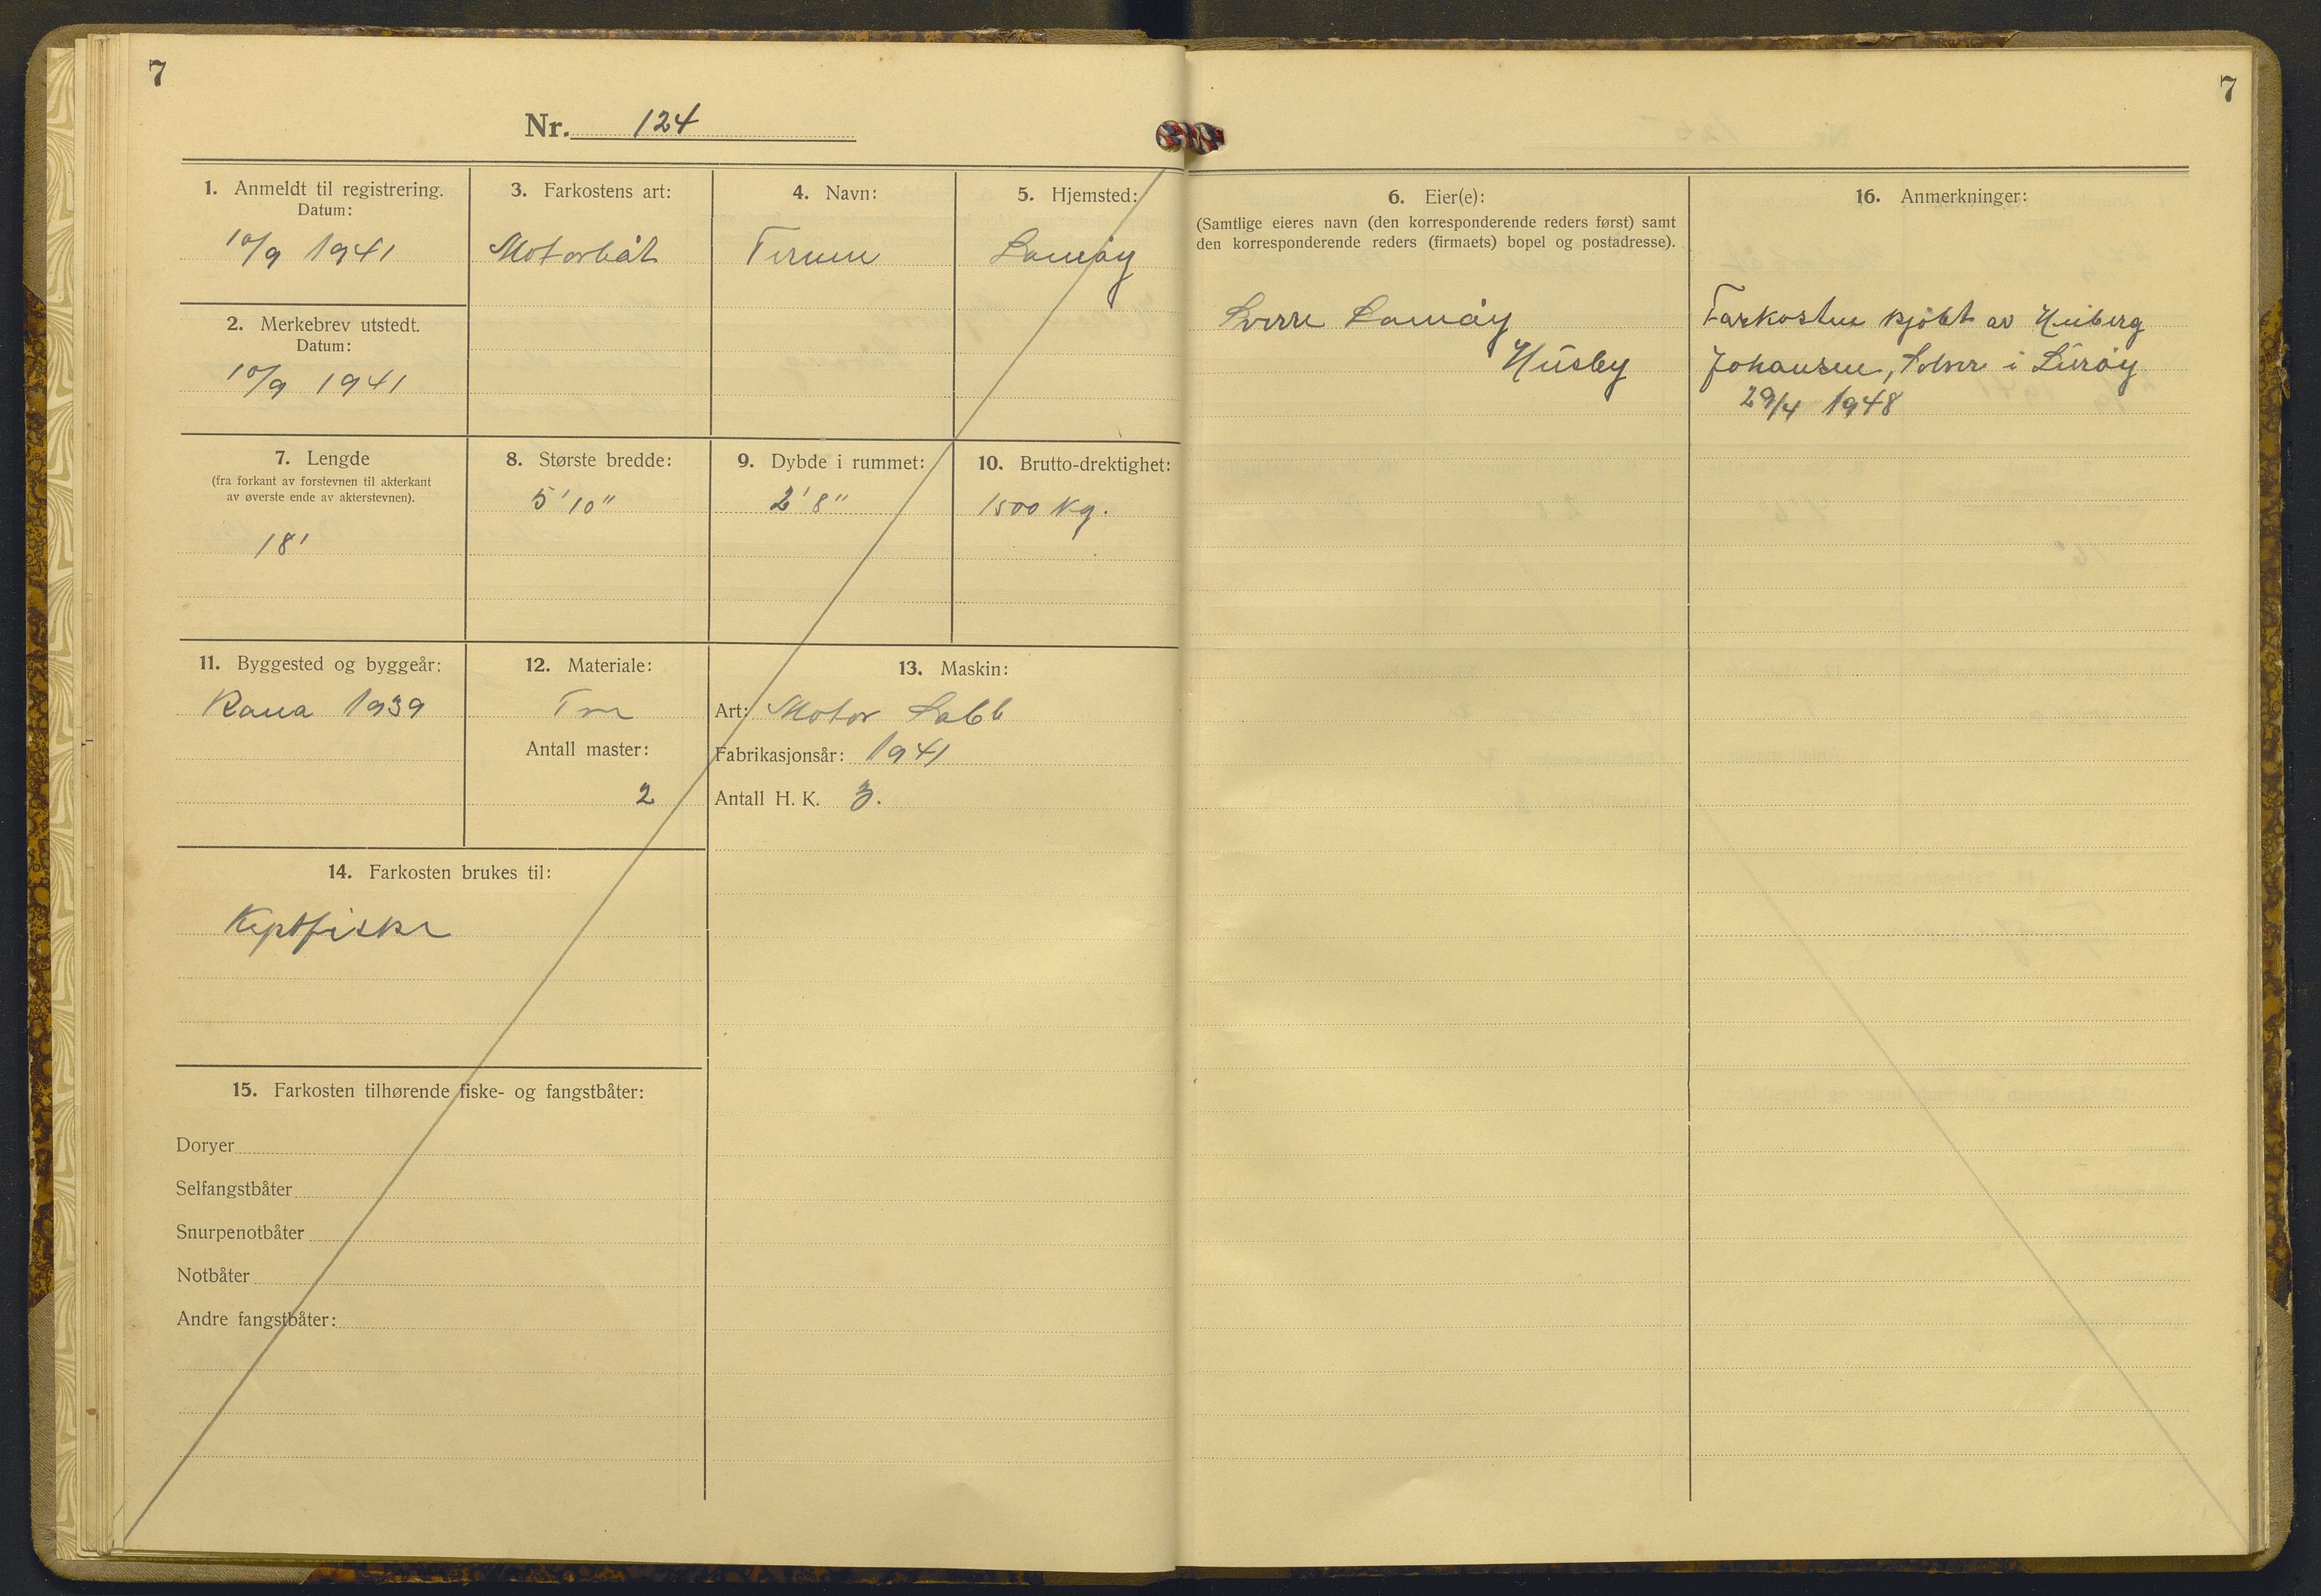 7
7
Nr. 124
1. Anmeldt til registrering.
Datum:
10/9 1941
2. Merkebrev utstedt.
Datum:
10/9 1941
3. Farkostens art:
Motorbåt
4. Navn:
5. Hjemsted:
6. Eier(e):
(Samtlige eieres navn (den korresponderende reders først) samt
den korresponderende reders (firmaets) bopel og postadresse).
Sverre
Husby
16. Anmerkninger:
Farkosten kjöbt av
Johansen, i Luröy
29/4 1948
7. Lengde
(fra forkant av forstevnen til akterkant
av øverste ende av akterstevnen).
18'
8. Største bredde:
5'10"
9. Dybde i rummet:
2'8"
10. Brutto-drektighet:
1500 kg.
11. Byggested og byggeår:
Rana 1939
12. Materiale:
Tre
Antall master:
2
13. Maskin:
Art: Motor Sabb
Fabrikasjonsår: 1941
Antall H. K. 3.
14. Farkosten brukes til:
Kystfiske
15. Farkosten tilhørende fiske- og fangstbåter:
Doryer
Selfangstbåter
Snurpenotbåter
Notbåter
Andre fangstbåter: